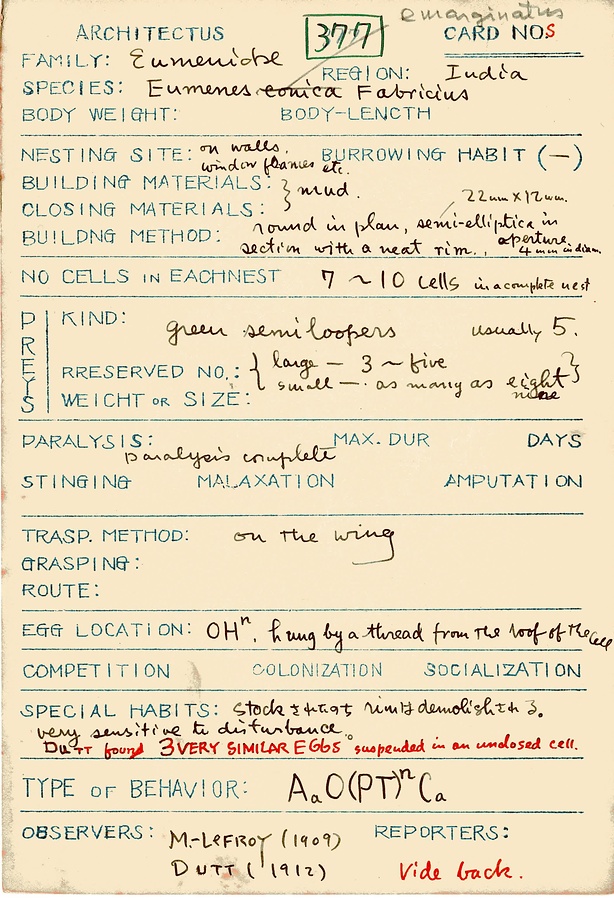 emarginatus
ARCHITECTUS 377 CARD NOS
FAMILY: Eumenidae
REGION: India
SPECIES: Eumenes conica Fabricius
BODY WEIGHT: BODY-LENCTH
NESTING SITE: on walls, window frames etc. BURROWING HABIT (—)
BUILDING MATERIALS: } mud.
CLOSING MATERIALS: 22mm X 12mm.
BUILDNG METHOD: round in plan, semi-elliptica in
section with a neat rim., aperture 4 mm in diam.
NO CELLS IN EACHNEST 7 ~ 10 cells in a complete nest
PREYS
KIND: green semiloopers usually 5.
RRESERVED NO.: { large — 3 ~ five
small — as many as eight }
WEICHT OR SIZE:
PARALYSIS: paralysis complete MAX. DUR DAYS
STINGING MALAXATION AMPUTATION
TRASP. METHOD: on the wing
GRASPING:
ROUTE:
EGG LOCATION: OHⁿ, hung by a thread from the roof of the cell
COMPETITION COLONIZATION SOCIALIZATION
SPECIAL HABITS: stock rim は demolish される。
very sensitive to disturbance.
DUTT found 3 VERY SIMILAR EGGS suspended in an unclosed cell.
TYPE OF BEHAVIOR: AaO(PT)ⁿCa
OBSERVERS: M.-LEFROY (1909) REPORTERS:
DUTT (1912) Vide back.